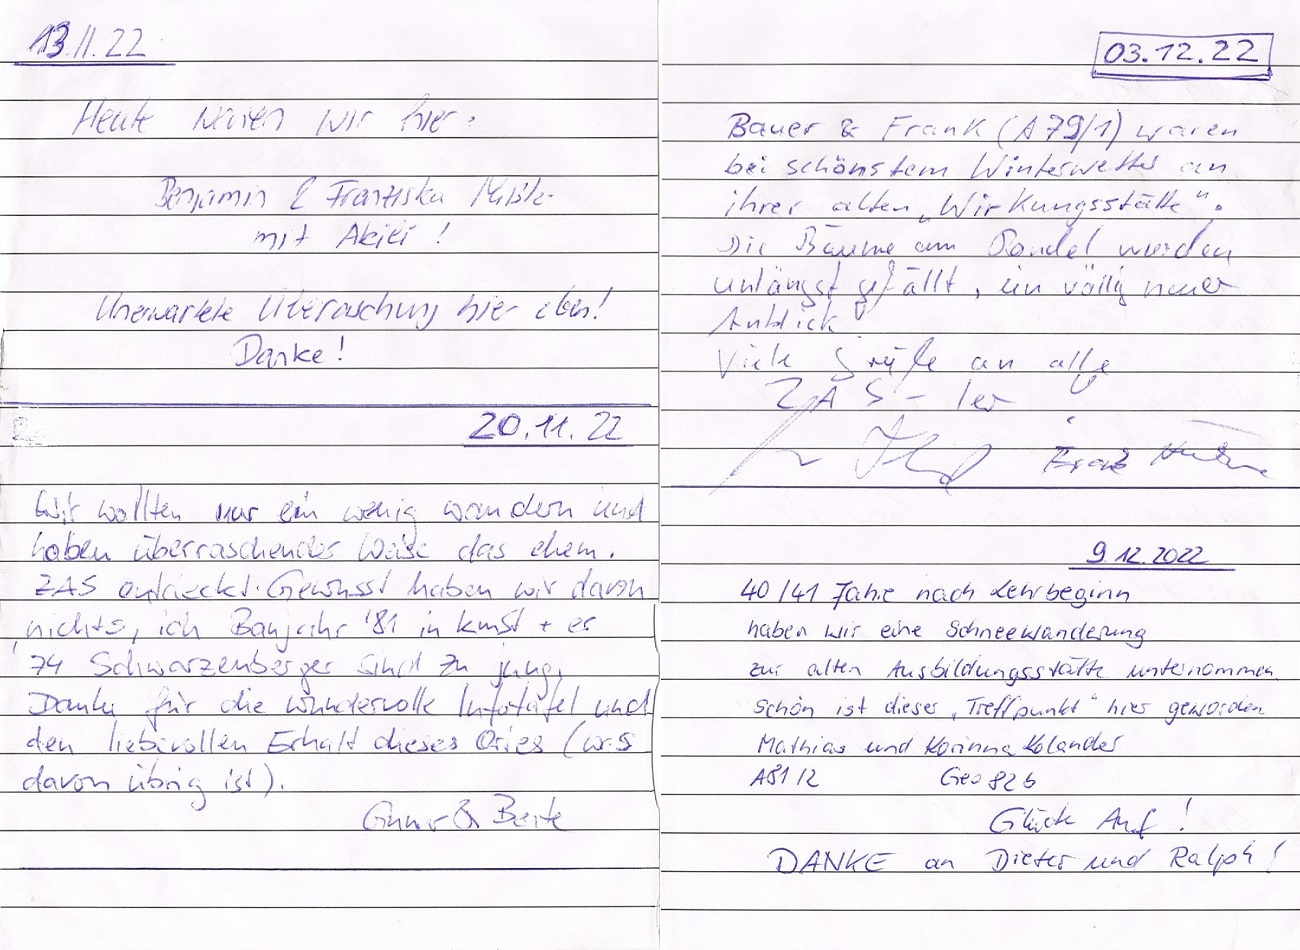 13.11.22
Heute waren wir hier:
Benjamin & Franziska
mit Akiki!
Unerwartete Überraschung hier oben!
Danke!
20.11.22
Wir wollten nur ein wenig wandern und
haben überraschender Weise das ehem.
ZAS entdeckt. Gewusst haben wir davon
nichts, ich Baujahr '81 in + er
'74 Schwarzenberger sind zu jung,
Danke für die wundervolle Infotafel und
den liebevollen Erhalt dieses Ortes (was
davon übrig ist).
& Beate
03.12.22
Bauer & Frank (A79/1) waren
bei schönstem Winterwetter an
ihrer alten „Wirkungsstätte".
Die Bäume am Rondel wurden
unlängst gefällt, ein völlig neuer
Anblick
Viele Grüße an alle
ZAS-ler
Frank
9.12.2022
40/41 Jahre nach Lehrbeginn
haben wir eine Schneewanderung
zur alten Ausbildungsstätte unternommen
schön ist dieser „Treffpunkt" hier geworden
Mathias und Korinna Kolander
A81/2 Geo82b
Glück Auf!
DANKE an Dieter und Ralph!